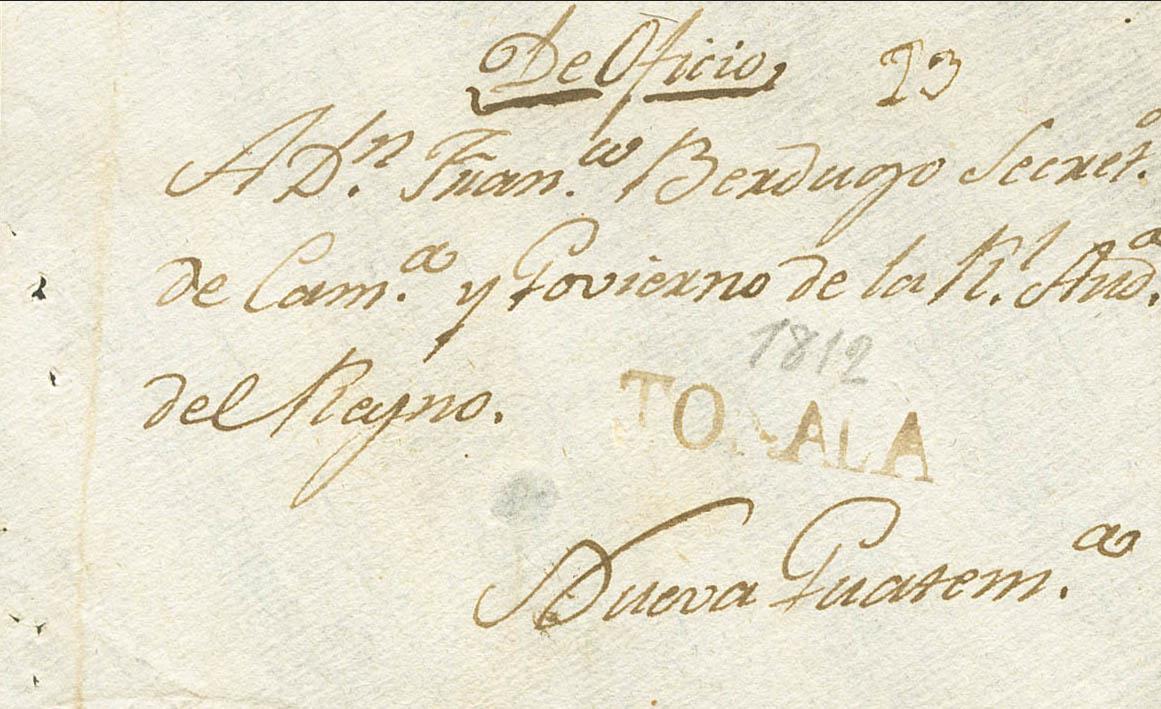 De Oficio, 23
A D.n Fran.co Berdugo Secret.o
de Cam.a y Govierno de la R.l Aud.a
del Reyno.
1812
TONALA
Nueva Guatem.a